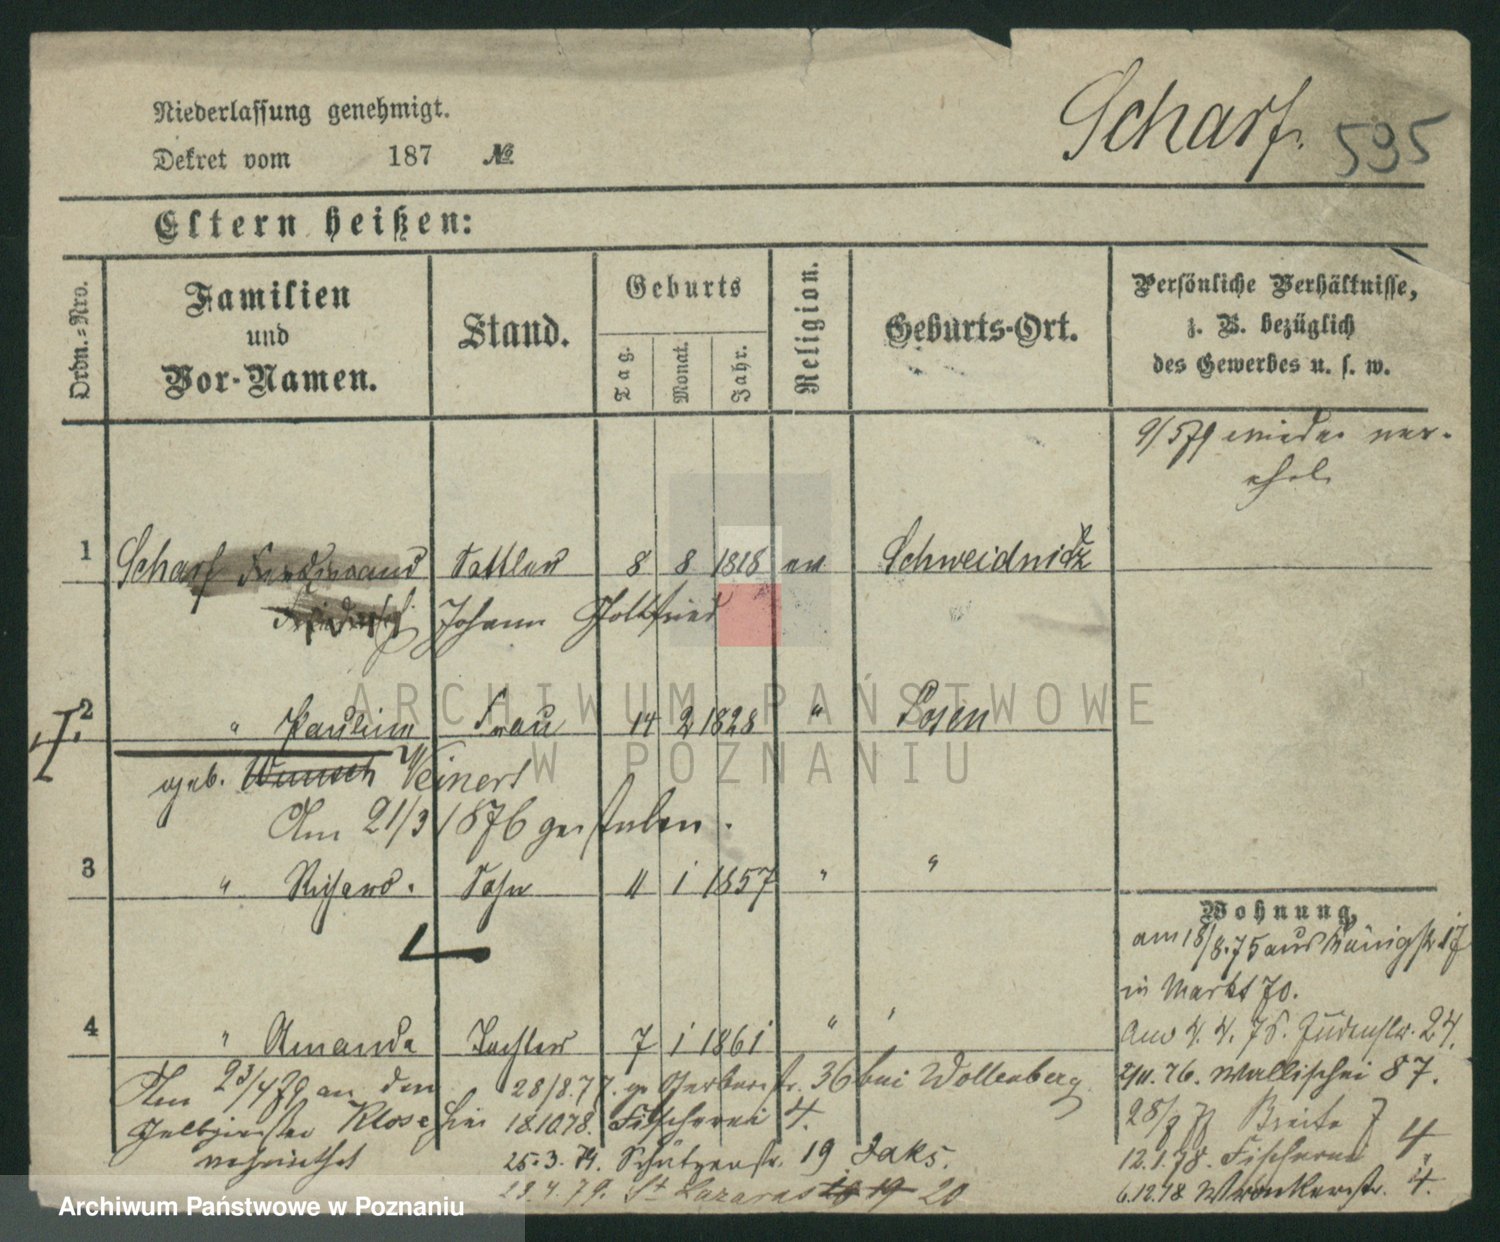 Scharf. 595
Niederlassung genehmigt.
Dekret vom 187 №
Eltern heißen:
Ordn.-Nro.
Familien
und
Vor-Namen.
Stand.
Geburts
Tag. Monat. Jahr.
Religion.
Geburts-Ort.
Persönliche Verhältnisse,
z. B. bezüglich
des Gewerbes u. s. w.
9/5 79 wieder ver-
ehel.
1 Scharf Ferdinand Sattler 8 8 1818 ev Schweidnidz
Johann Gottfried
2 " Pauline Frau 14 2 1828 " Posen
geb. Wunsch Weinert
Am 21/3 1876 gestorben.
3 " Richard. Sohn 11 1 1857 " "
4 " Amanda Tochter 7 1 1861 " "
Am 23/4 79 an den
Klose hier
verheirathet
28/8.77. Gerberstr. 36 bei Wollenberg
18.10.78. Fischerei 4.
25.3.79. Schützenstr. 19 Jaks.
29.4.79. St Lazarus 19 20
Wohnung,
am 18/8.75 aus Königstr 17
in Markt 70.
Am 4.4.76. Judenstr. 24.
2/11.76. Wallischei 87.
28/8 77 Breite 7
12.1.78. Fischerei 4.
6.12.78 Wronkerstr. 4.
ARCHIWUM PAŃSTWOWE
W POZNANIU
Archiwum Państwowe w Poznaniu